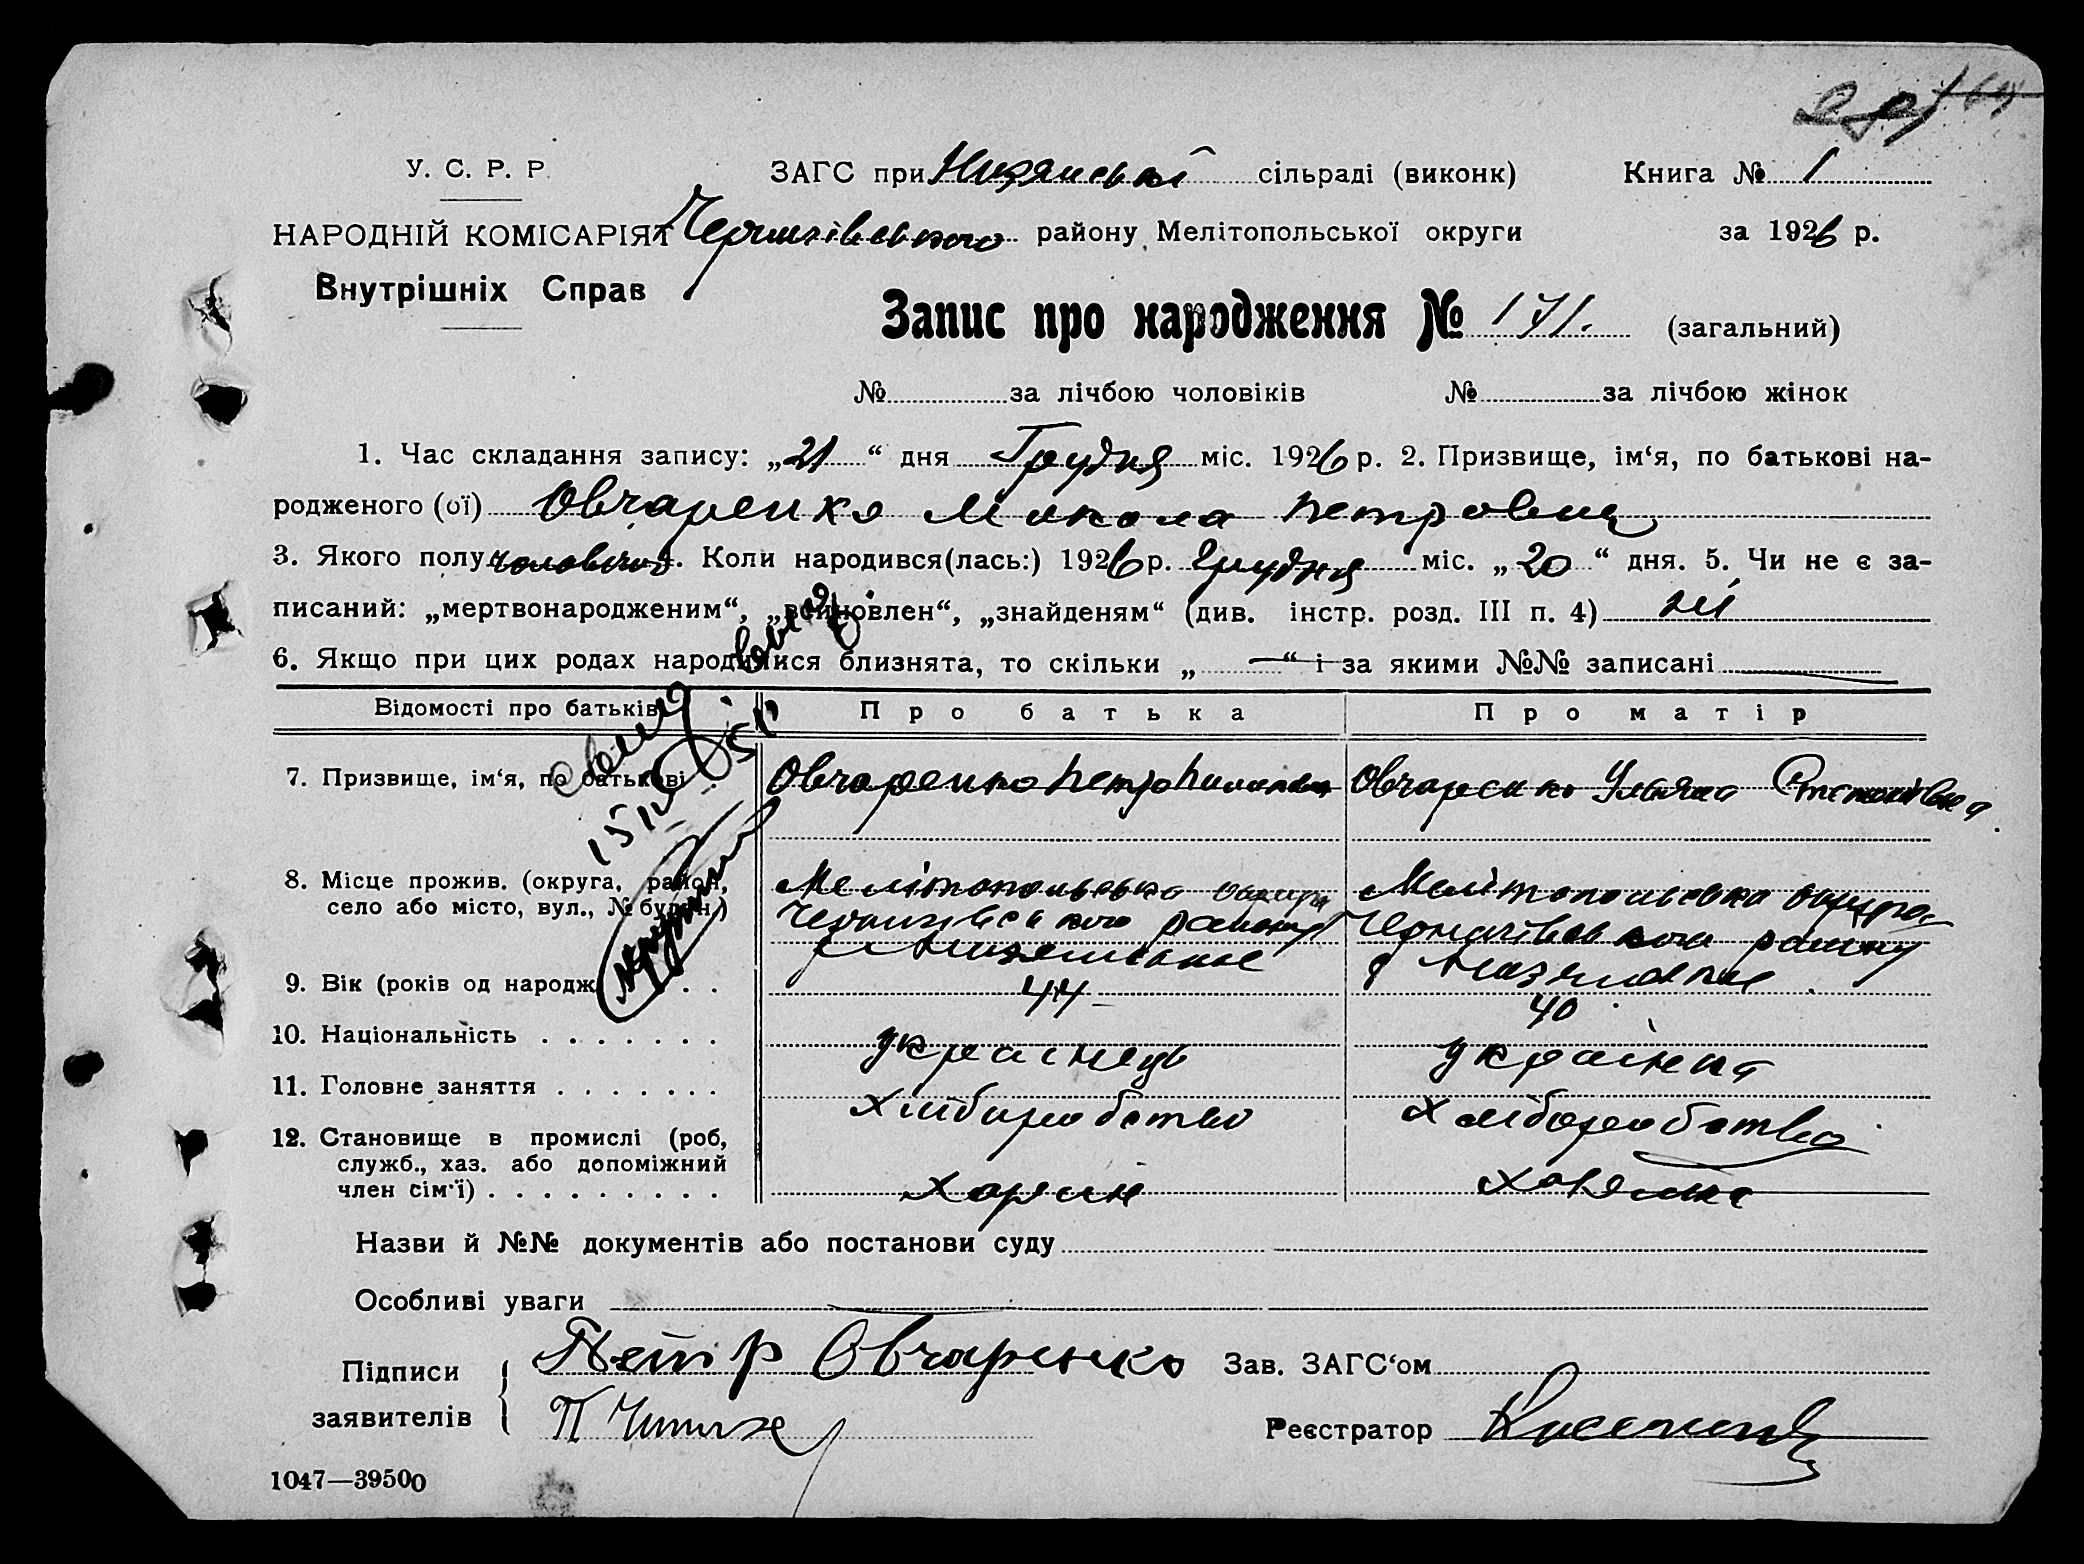 У. С. Р. Р
ЗАГС при сільраді (виконк)
Книга № 1
НАРОДНІЙ КОМІСАРІЯТ
Чернигівського району Мелітопольської округи
за 1926 р.
Внутрішніх Справ
Запис про народження № 171. (загальний)
№ за лічбою чоловіків № за лічбою жінок
1. Час складання запису: „21“ дня Грудня міс. 1926 р. 2. Призвище, ім‘я, по батькові на-
родженого (ої) Овчаренко Микола Петрович
3. Якого полу чоловічої 4. Коли народився(лась:) 1926 р. Грудня міс. „20“ дня. 5. Чи не є за-
писаний: „мертвонародженим“, „всиновлен“, „знайденям“ (див. інстр. розд. III п. 4) ні
6. Якщо при цих родах народилися близнята, то скільки „ — “ і за якими №№ записані
Відомості про батьків
Про батька
Про матір
7. Призвище, ім‘я, по батькові
Овчаренко Петро
Овчаренко Уляна Степанівна
8. Місце прожив. (округа, район,
село або місто, вул., № будин.)
Мелітопольська округа
Чернигівського району
Мелітопольська округа
Чернигівського району
9. Вік (років од народж.) . .
44
40
10. Національність . . . . . . .
українець
українка
11. Головне заняття . . . . . . .
хліборобство
хліборобство
12. Становище в промислі (роб,
служб., хаз. або допоміжний
член сім‘ї) . . . . . . . . .
хазяїн
хазяйка
Назви й №№ документів або постанови суду
Особливі уваги
Підписи
заявителів
Петр Овчаренко
Зав. ЗАГС‘ом
Реєстратор
1047—39500